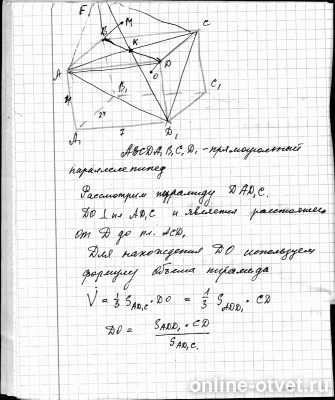 E
M
B
C
K
A
D
O
B₁
C₁
24
A₁
7
D₁
ABCDA₁B₁C₁D₁ - прямоугольный
параллелепипед
Рассмотрим пирамиду DAD₁C.
DO ⊥ пл AD₁C и является расстоянием
от D до пл. ACD₁
Для нахождения DO используем
формулу объёма пирамиды
V = 1/3 S_AD₁C · DO = 1/3 S_ADD₁ · CD
DO = S_ADD₁ · CD / S_AD₁C.
online-otvet.ru